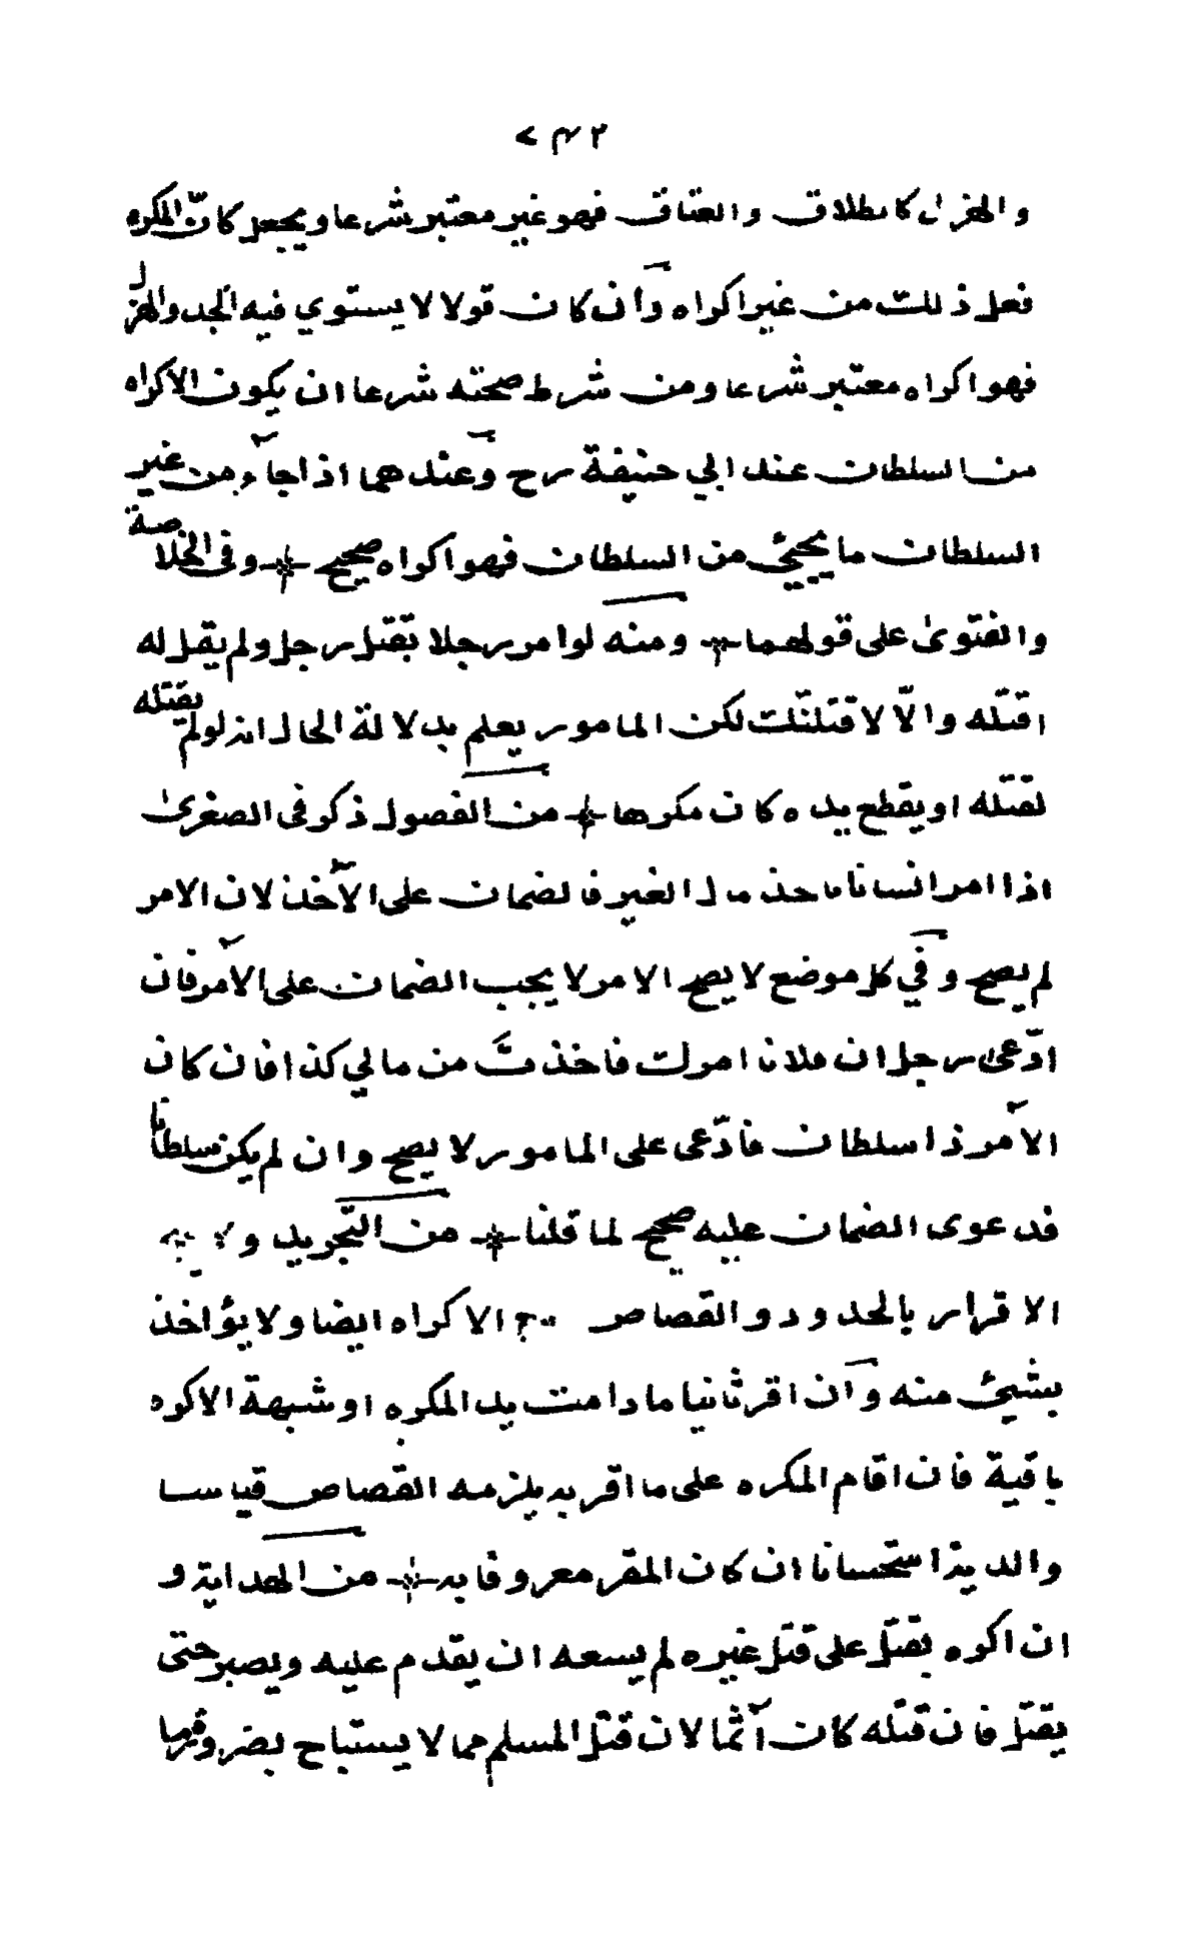 ٧٤٢
والهزل كالطلاق والعتاق فهو غير معتبر شرعا ويجعل كانّ المكره
فعل ذلك من غير اكراه وان كان قولا لا يستوي فيه الجد والهزل
فهو اكراه معتبر شرعا ومن شرط صحته شرعا ان يكون الاكراه
من السلطان عند ابي حنيفة رح وعندهما اذا جآء من غير
السلطان ما يجيئ من السلطان فهو اكراه صحيح وفى الخلاصة
والفتوىٰ على قولهما ومنه لو امر رجلا بقتل رجل ولم يقل له
اقتله والّا لاقتلنّك لكن المامور يعلم بدلالة الحال انه لو لم يقتله
لقتله او يقطع يده كان مكرها من الفصول ذكر فى الصغرىٰ
اذا امر انسانا باخذ مال الغير فالضمان على الآخذ لان الامر
لم يصح وفي كل موضع لا يصح الامر لا يجب الضمان على الآمر فان
ادّعى رجل ان فلانا امرك فاخذتَ من مالي كذا فان كان
الآمر ذا سلطان فادّعى على المامور لا يصح وان لم يكن سلطانا
فدعوى الضمان عليه صحيح لما قلنا من التجريد ولا
الاقرار بالحدود والقصاص الاكراه ايضا ولا يؤاخذ
بشيئ منه وان اقر ثانيا ما دامت يد المكره او شبهة الاكره
باقية فان اقام المكره على ما اقر به يلزمه القصاص قياسا
والدية استحسانا ان كان المقر معروفا به من الهداية و
ان اكره بقتل على قتل غيره لم يسعه ان يقدم عليه ويصبر حتى
يقتل فان قتله كان آثما لان قتل المسلم مما لا يستباح لضرورة ما